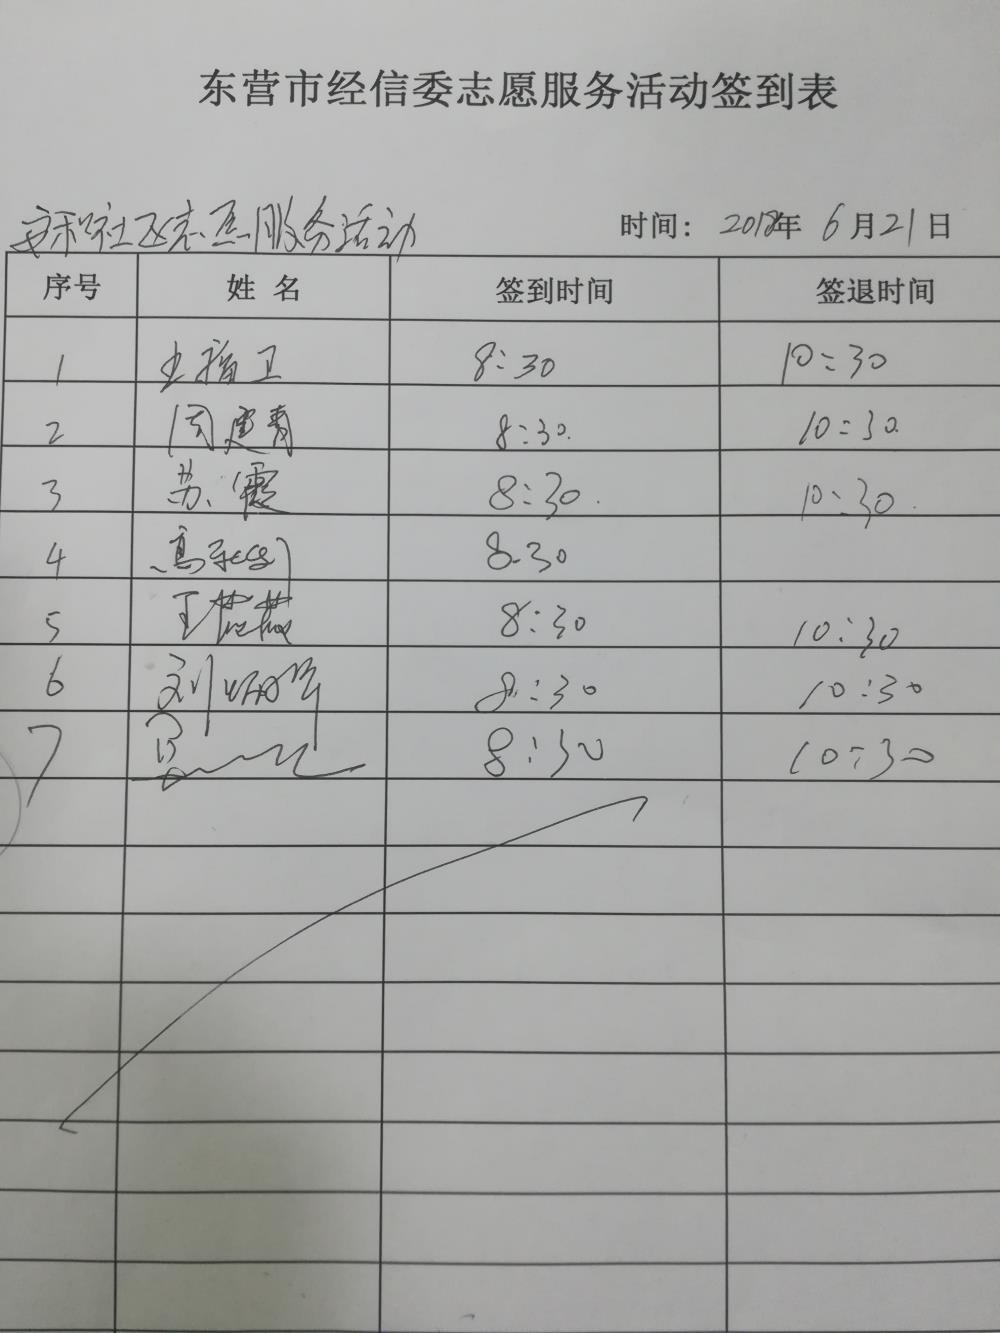 东营市经信委志愿服务活动签到表
安和社区志愿服务活动 时间：2018年6月21日
序号 姓名 签到时间 签退时间
1 王 卫 8:30 10:30
2 周建青 8:30 10:30
3 苏霞 8:30 10:30
4 高 8:30
5 王 薇 8:30 10:30
6 刘炳 8:30 10:30
7 8:30 10:30